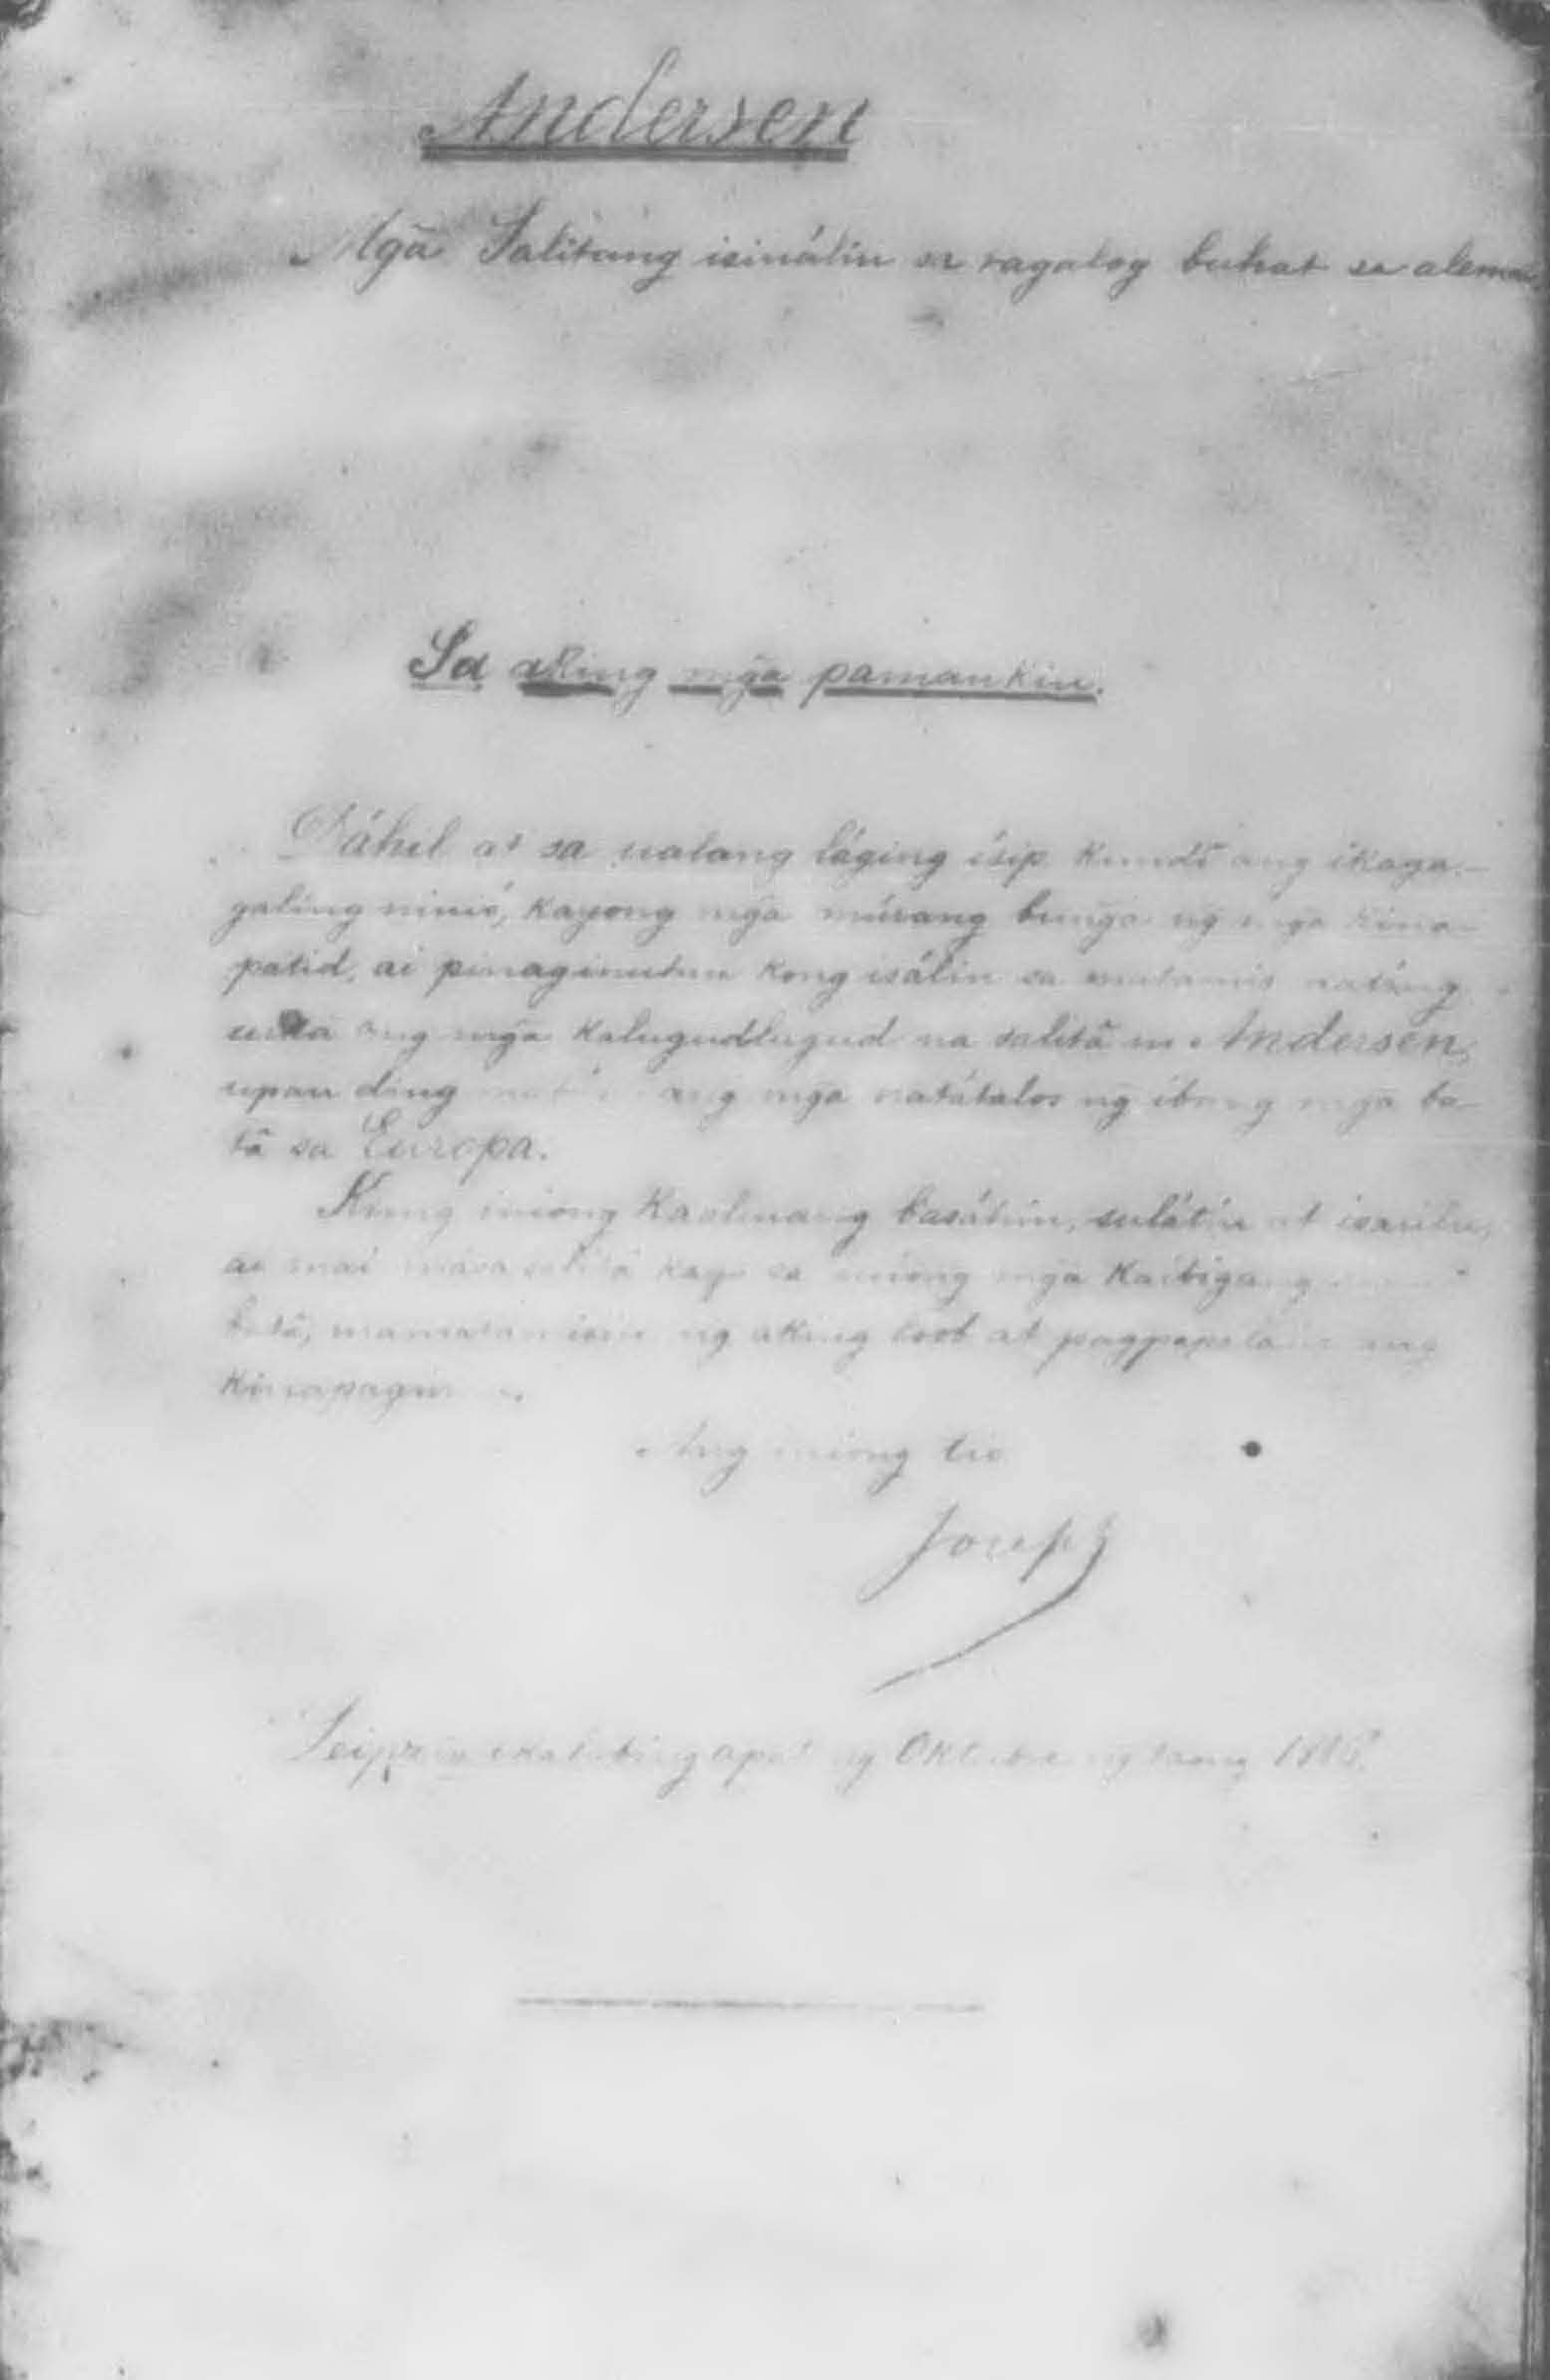 Andersen
Mga Salitang isinálin sa tagalog buhat sa aleman
Sa aking mga pamankin.
Dáhil at sa ualang láging ísip kundî ang ikaga-
galing ninió, kayong mga múrang bunga ng mga kina-
patid, ai pinaginutan kong isálin sa matamis nating
uika ang mga kalugudlugud na salitâ ni Andersen,
upan ding ang mga natátalos ng ibang mga ba-
tâ sa Europa.
Kung iniong kaalinang basáhin, sulátin at isaulu,
ai mai kayo sa iniong mga kaibigang
batâ, ng aking loob at ang
Ang iniong tio
Joseph
Leipzig ikalabingapat ng Oktubre ng taong 1886.